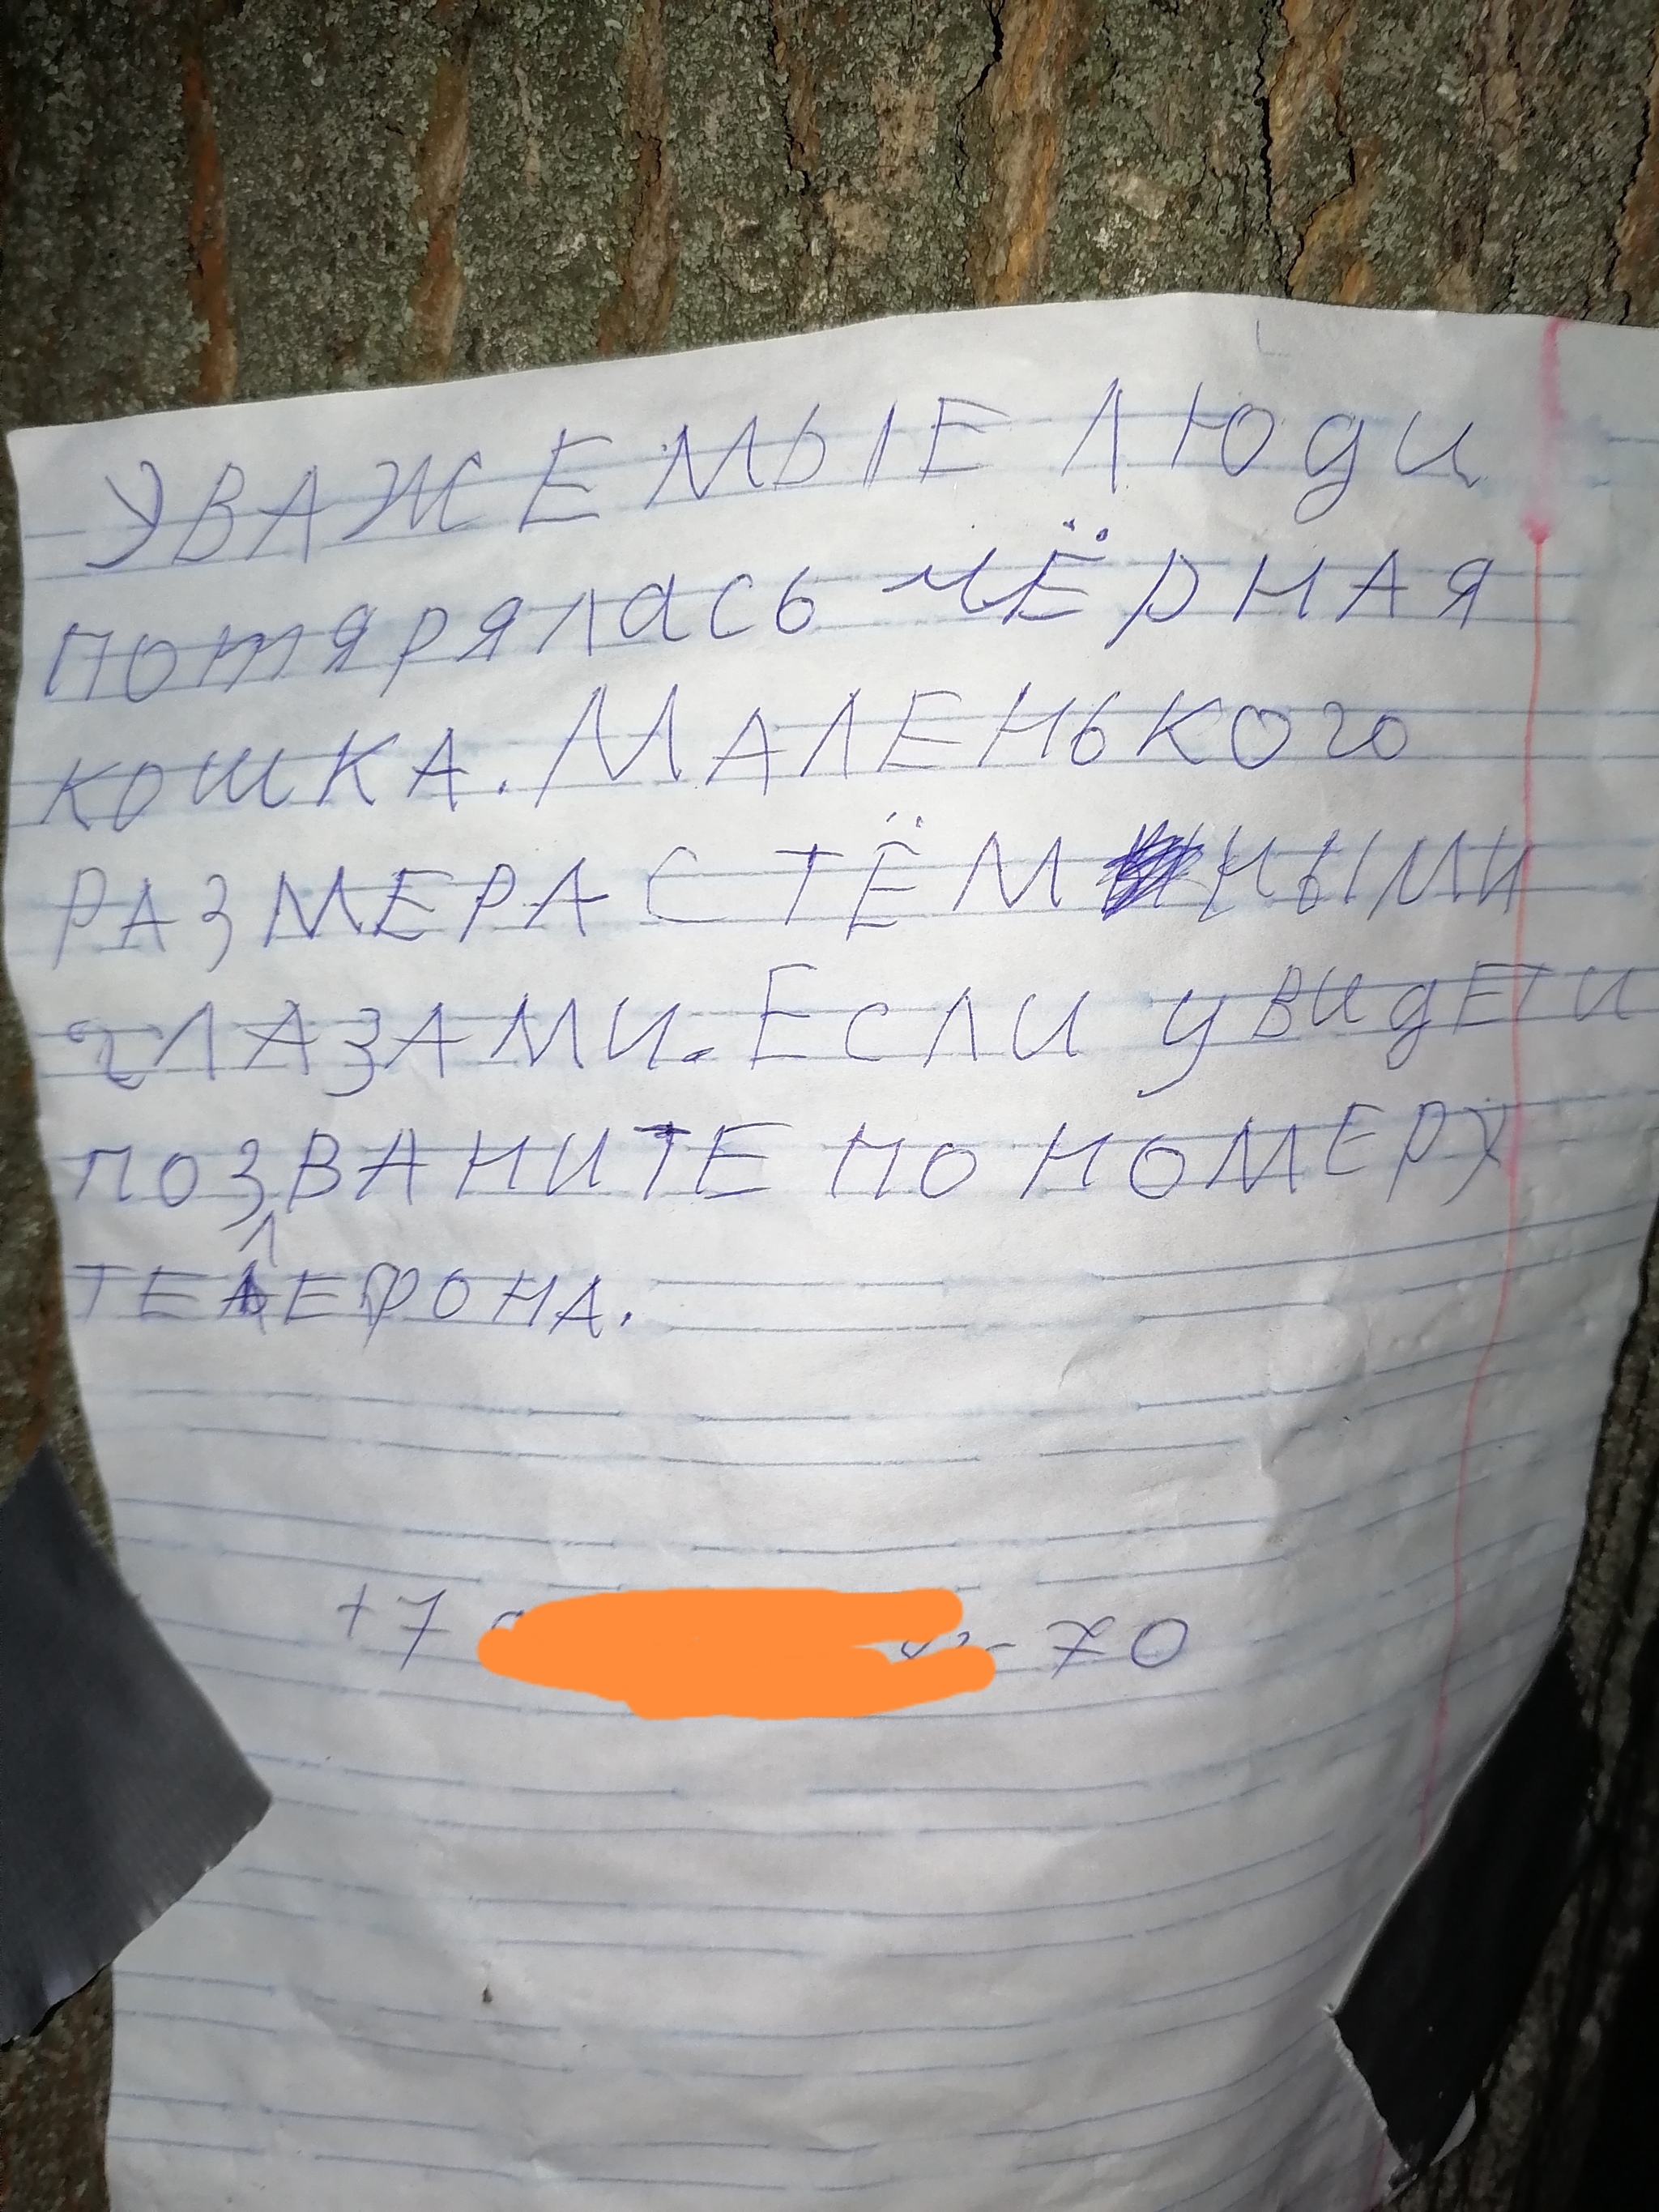 УВАЖЕМЫЕ ЛЮДИ
ПОТЯРЯЛАСЬ ЧЁРНАЯ
КОШКА. МАЛЕНЬКОГО
РАЗМЕРА С ТЁМНЫМИ
ГЛАЗАМИ. ЕСЛИ УВИДЕТИ
ПОЗВАНИТЕ ПО НОМЕРУ
ТЕЛЕФОНА.
+7 - 70